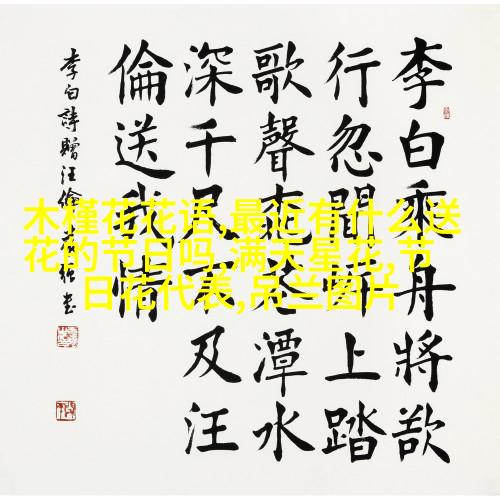 李白乘舟將欲
行忽聞岸上踏
歌聲桃花潭水
深千尺不及汪
倫送我情
李白詩贈汪倫 書
木槿花花语,最近有什么送
花的节日吗,满天星花,节
日花代表,吊兰图片